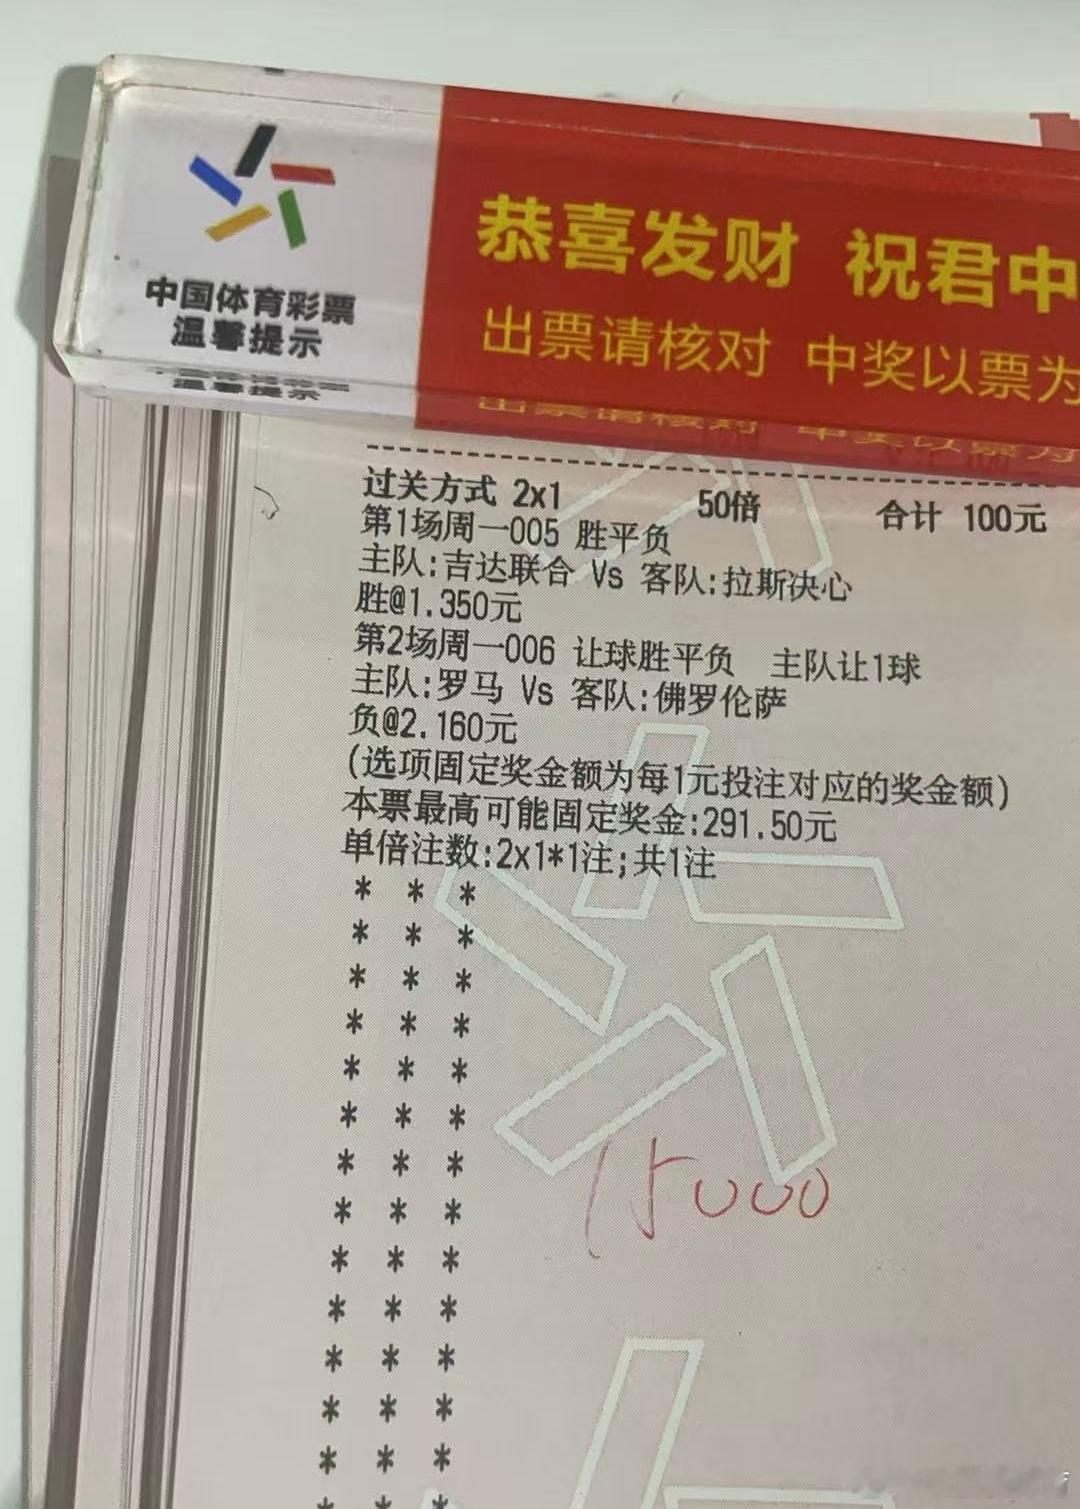 中国体育彩票
温馨提示
恭喜发财 祝君中
出票请核对 中奖以票为
过关方式 2x1 50倍 合计 100元
第1场周一005 胜平负
主队:吉达联合 Vs 客队:拉斯决心
胜@1.350元
第2场周一006 让球胜平负 主队让1球
主队:罗马 Vs 客队:佛罗伦萨
负@2.160元
(选项固定奖金额为每1元投注对应的奖金额)
本票最高可能固定奖金:291.50元
单倍注数:2x1*1注;共1注
* * *
* * *
* * *
* * *
* * *
* * *
* * *
* * *
* * *
* * *
* * *
* * *
* * *
* * *
15000